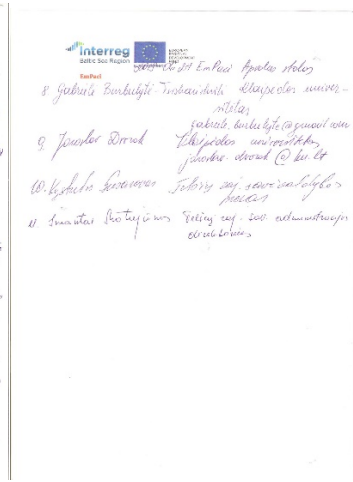 Interreg
Baltic Sea Region
EUROPEAN REGIONAL DEVELOPMENT FUND
EmPaci
EmPaci Apvalus stalas
8. Gabrielė Burbulytė-Tsiskarishvili Klaipėdos univer-
sitetas
gabriele.burbulyte@gmail.com
9. Jaroslav Dvorak Klaipėdos universitetas
jaroslav.dvorak@ku.lt
10. Kęstutis Telšių raj. savivaldybės
meras
11 Telšių raj. sav administracijos
direktorius